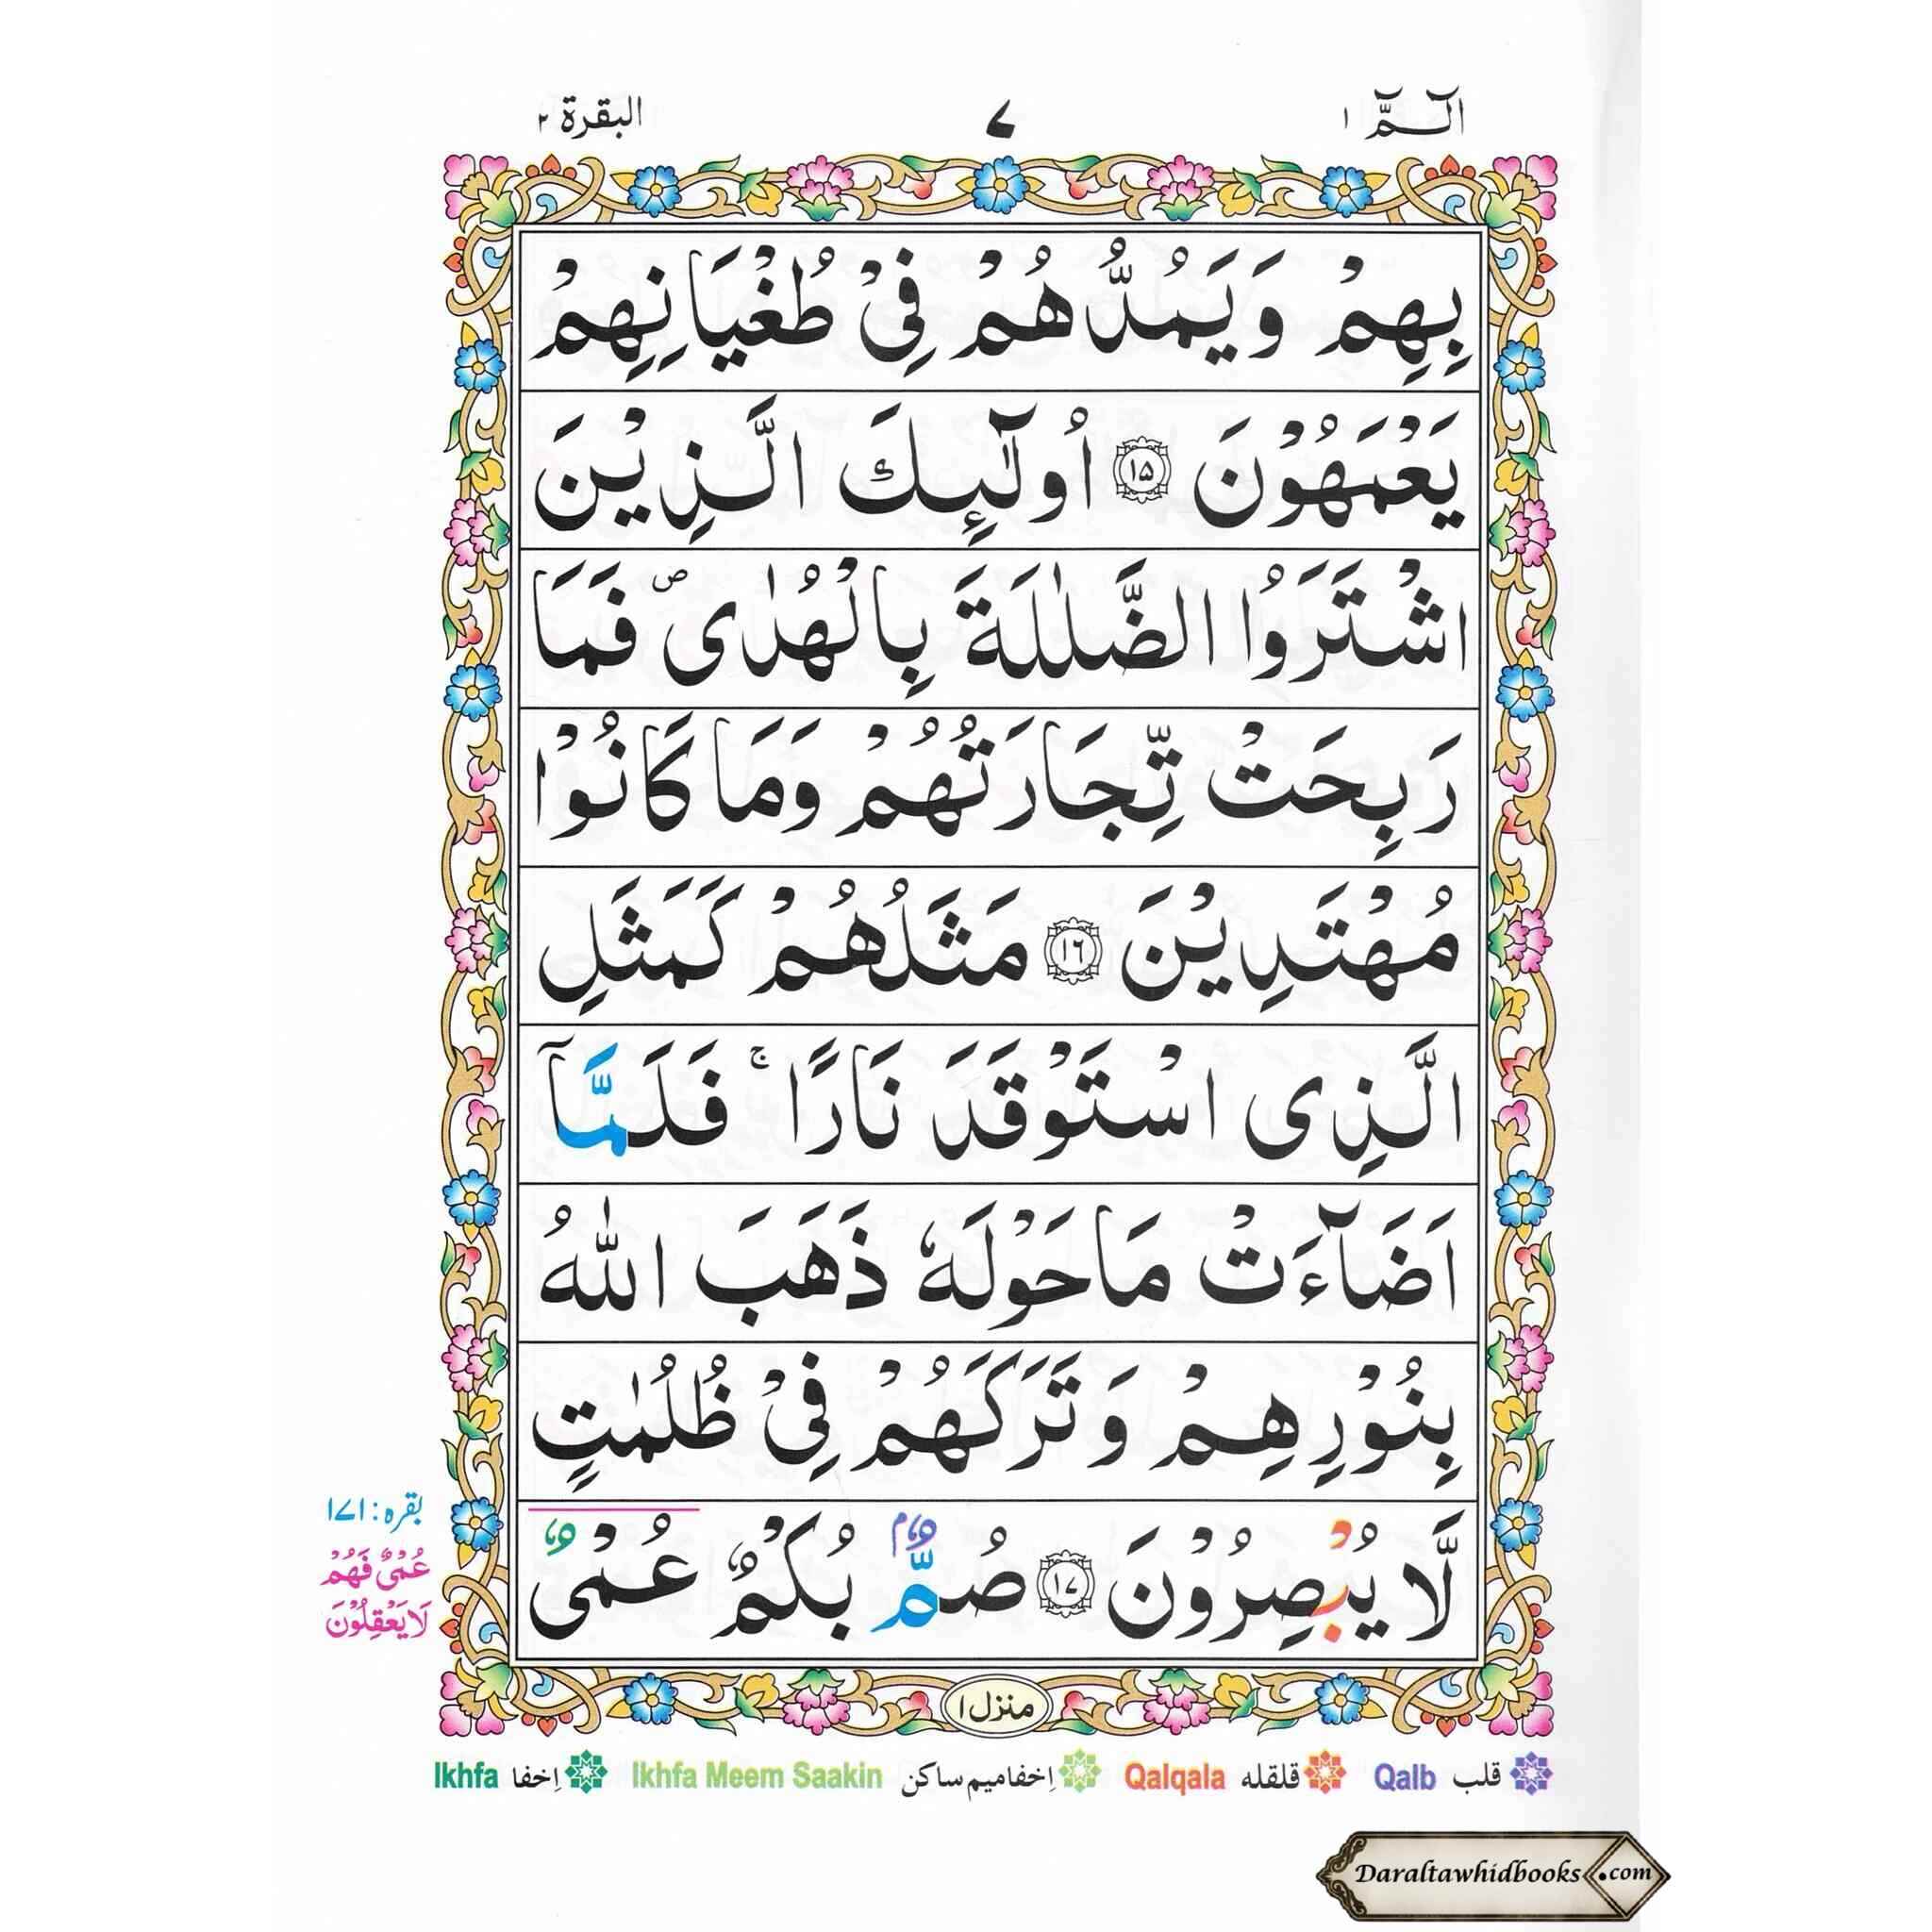 الٓـمّٓ ١
٧
البقرة ٢
بِهِمْ وَيَمُدُّهُمْ فِيْ طُغْيَانِهِمْ
يَعْمَهُوْنَ ١٥ اُولٰٓئِكَ الَّذِيْنَ
اشْتَرَوُا الضَّلٰلَةَ بِالْهُدٰى ص فَمَا
رَبِحَتْ تِّجَارَتُهُمْ وَمَا كَانُوْا
مُهْتَدِيْنَ ١٦ مَثَلُهُمْ كَمَثَلِ
الَّذِى اسْتَوْقَدَ نَارًا ج فَلَمَّآ
اَضَآءَتْ مَا حَوْلَهٗ ذَهَبَ اللّٰهُ
بِنُوْرِهِمْ وَتَرَكَهُمْ فِيْ ظُلُمٰتٍ
لَّا يُبْصِرُوْنَ ١٧ صُمٌّۢ بُكْمٌ عُمْىٌ
بقره: ١٧١
عُمْىٌ فَهُمْ
لَا يَعْقِلُوْنَ
منزل ١
قلب Qalb
قلقله Qalqala
اِخفا میم ساکن Ikhfa Meem Saakin
اِخفا Ikhfa
Daraltawhidbooks.com